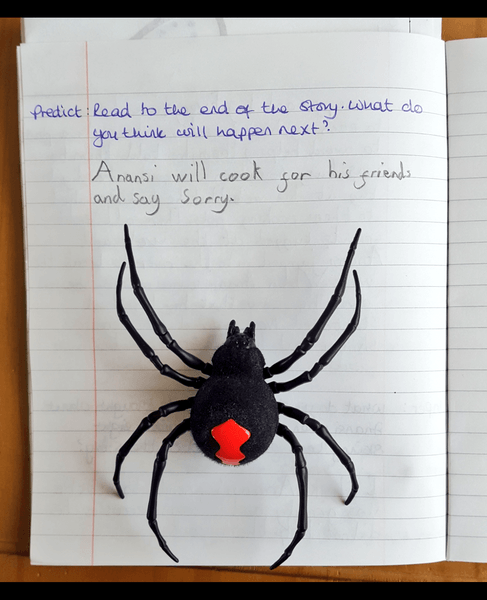 Predict: Read to the end of the story. What do
you think will happen next?
Anansi will cook for his friends
and say sorry.